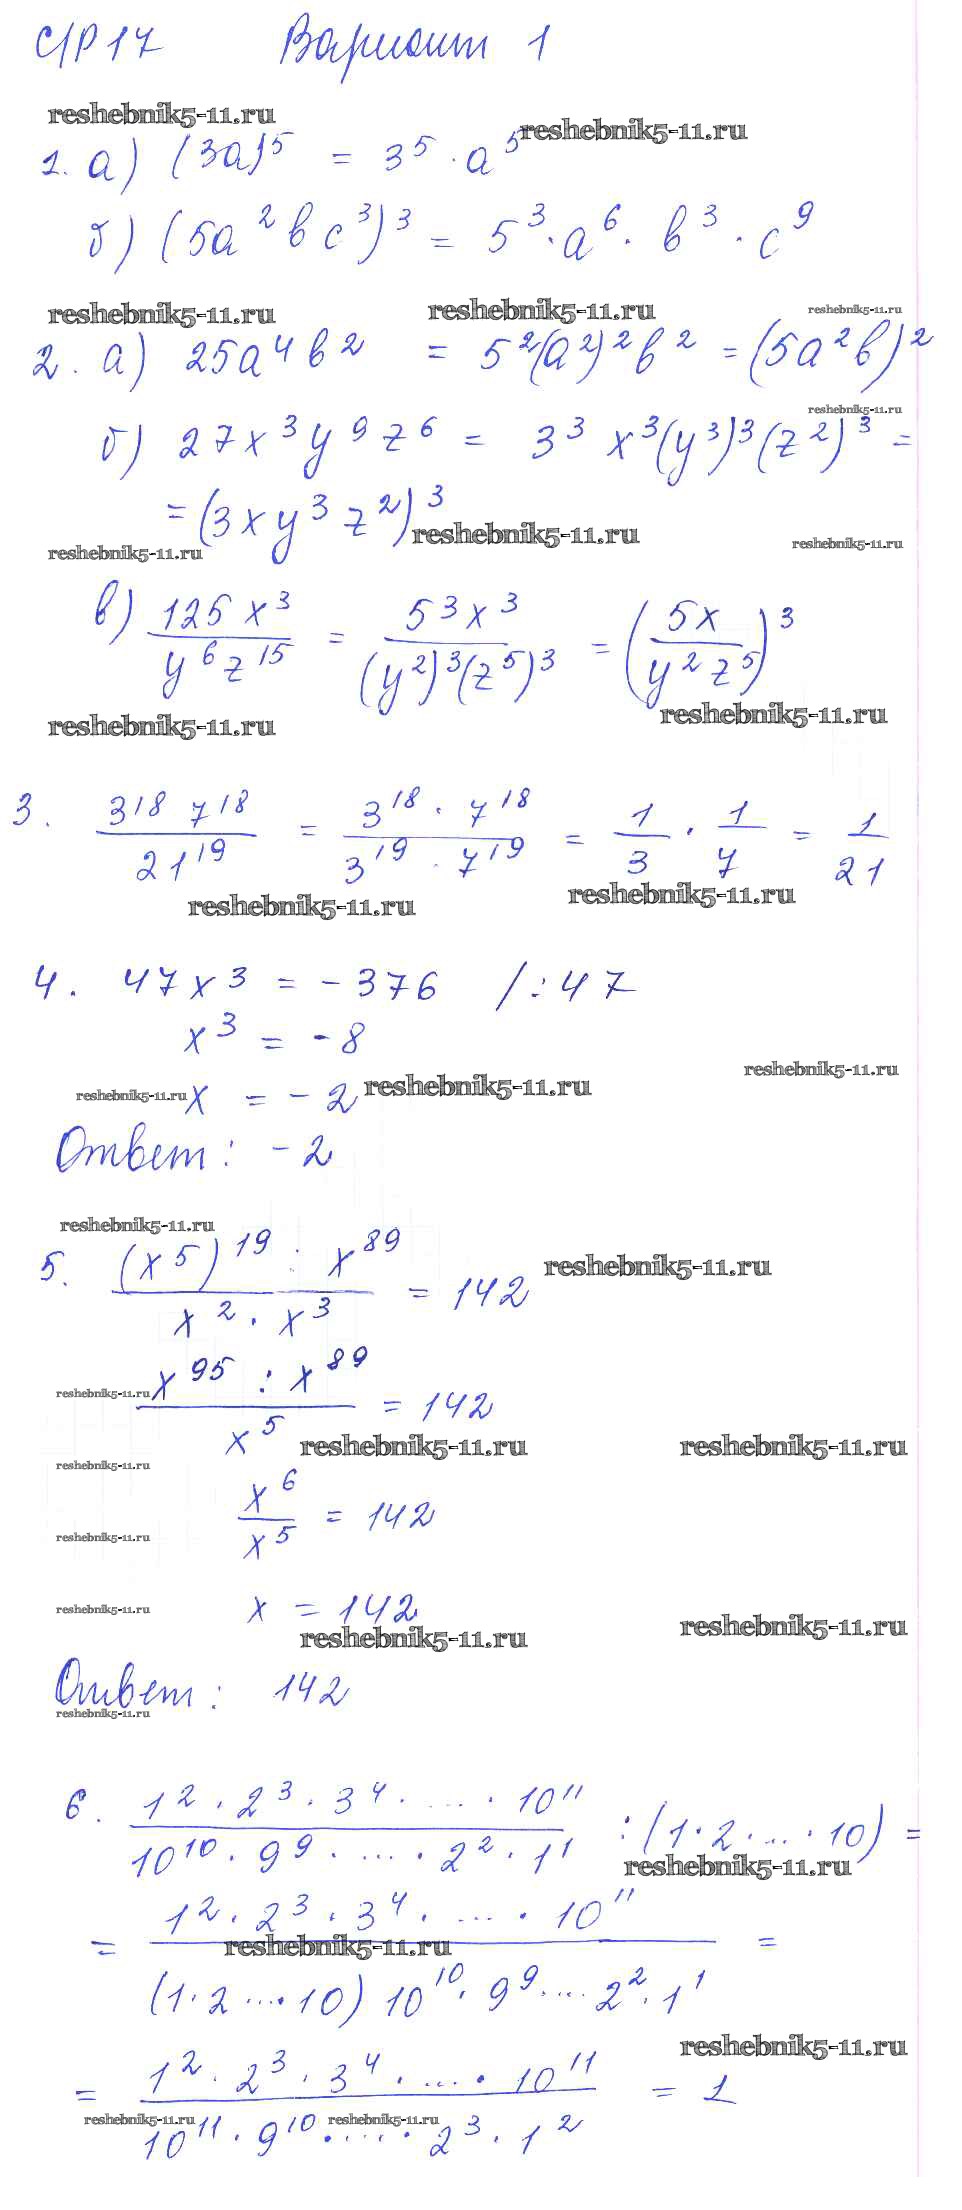 С/Р 17 Вариант 1
reshebnik5-11.ru
reshebnik5-11.ru
1. а) (3a)⁵ = 3⁵ · a⁵
б) (5a²bc³)³ = 5³ · a⁶ · b³ · c⁹
reshebnik5-11.ru reshebnik5-11.ru reshebnik5-11.ru
2. а) 25a⁴b² = 5²(a²)²b² = (5a²b)²
reshebnik5-11.ru
б) 27x³y⁹z⁶ = 3³ x³(y³)³(z²)³ =
= (3xy³z²)³
reshebnik5-11.ru reshebnik5-11.ru reshebnik5-11.ru
в) 125x³ / y⁶z¹⁵ = 5³x³ / (y²)³(z⁵)³ = (5x / y²z⁵)³
reshebnik5-11.ru reshebnik5-11.ru
3. 3¹⁸ 7¹⁸ / 21¹⁹ = 3¹⁸ · 7¹⁸ / 3¹⁹ · 7¹⁹ = 1/3 · 1/7 = 1/21
reshebnik5-11.ru reshebnik5-11.ru
4. 47x³ = -376 /:47
x³ = -8
reshebnik5-11.ru
x = -2
reshebnik5-11.ru reshebnik5-11.ru
Ответ: -2
reshebnik5-11.ru
5. (x⁵)¹⁹ : x⁸⁹ / x² · x³ = 142
reshebnik5-11.ru
x⁹⁵ : x⁸⁹ / x⁵ = 142
reshebnik5-11.ru
reshebnik5-11.ru reshebnik5-11.ru
reshebnik5-11.ru
x⁶ / x⁵ = 142
reshebnik5-11.ru
x = 142
reshebnik5-11.ru
reshebnik5-11.ru reshebnik5-11.ru
Ответ: 142
reshebnik5-11.ru
6. 1² · 2³ · 3⁴ · ... · 10¹¹ / 10¹⁰ · 9⁹ · ... · 2² · 1¹ : (1 · 2 · ... · 10) =
reshebnik5-11.ru
= 1² · 2³ · 3⁴ · ... · 10¹¹ / (1 · 2 ... · 10) 10¹⁰ · 9⁹ · ... 2² · 1¹ =
reshebnik5-11.ru
reshebnik5-11.ru
= 1² · 2³ · 3⁴ · ... · 10¹¹ / 10¹¹ · 9¹⁰ · ... · 2³ · 1² = 1
reshebnik5-11.ru reshebnik5-11.ru